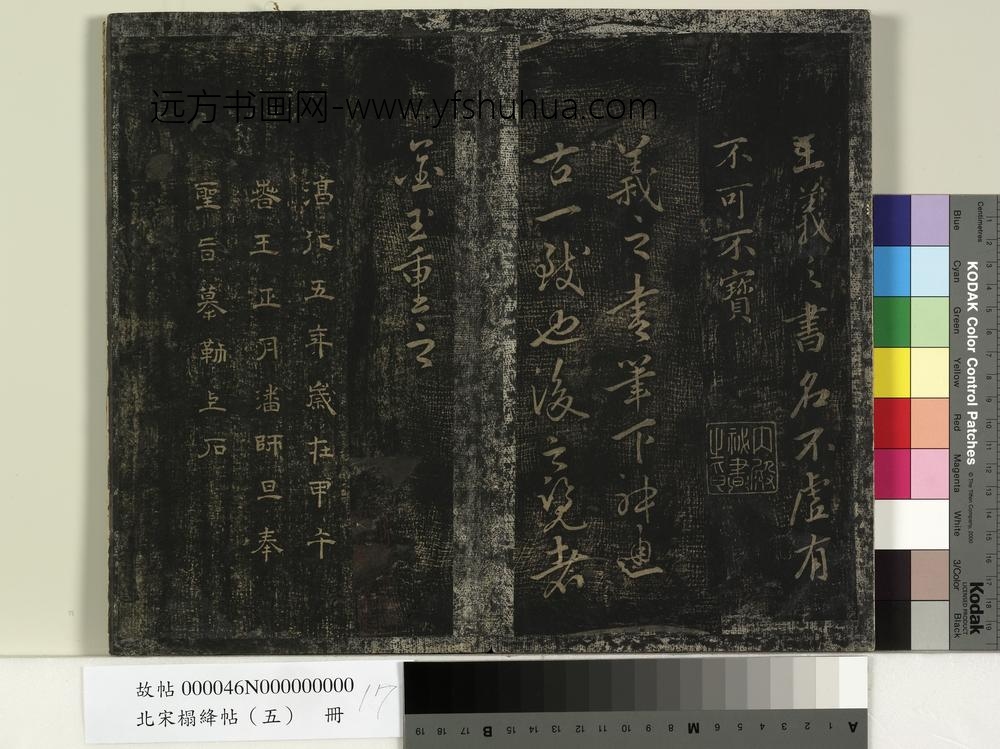 远方书画网-www.yfshuhua.com
王羲之書名不虛有
不可不寶
內殿
祕書
之印
羲之書筆下神迪
古一致也後之覽者
金玉重之
春王正月潘師旦奉
聖旨摹勒上石
故帖 000046N000000000
17
北宋榻絳帖（五） 冊
KODAK Color Control Patches
© The Tiffen Company, 2000
Kodak
LICENSED PRODUCT
Centimetres
Blue
Cyan
Green
Yellow
Red
Magenta
White
3/Color
Black
1 2 3 4 5 6 7 8 9 10 11 12 13 14 15 16 17 18 19
A 1 2 3 4 5 6 M 8 9 10 11 12 13 14 15 B 17 18 19